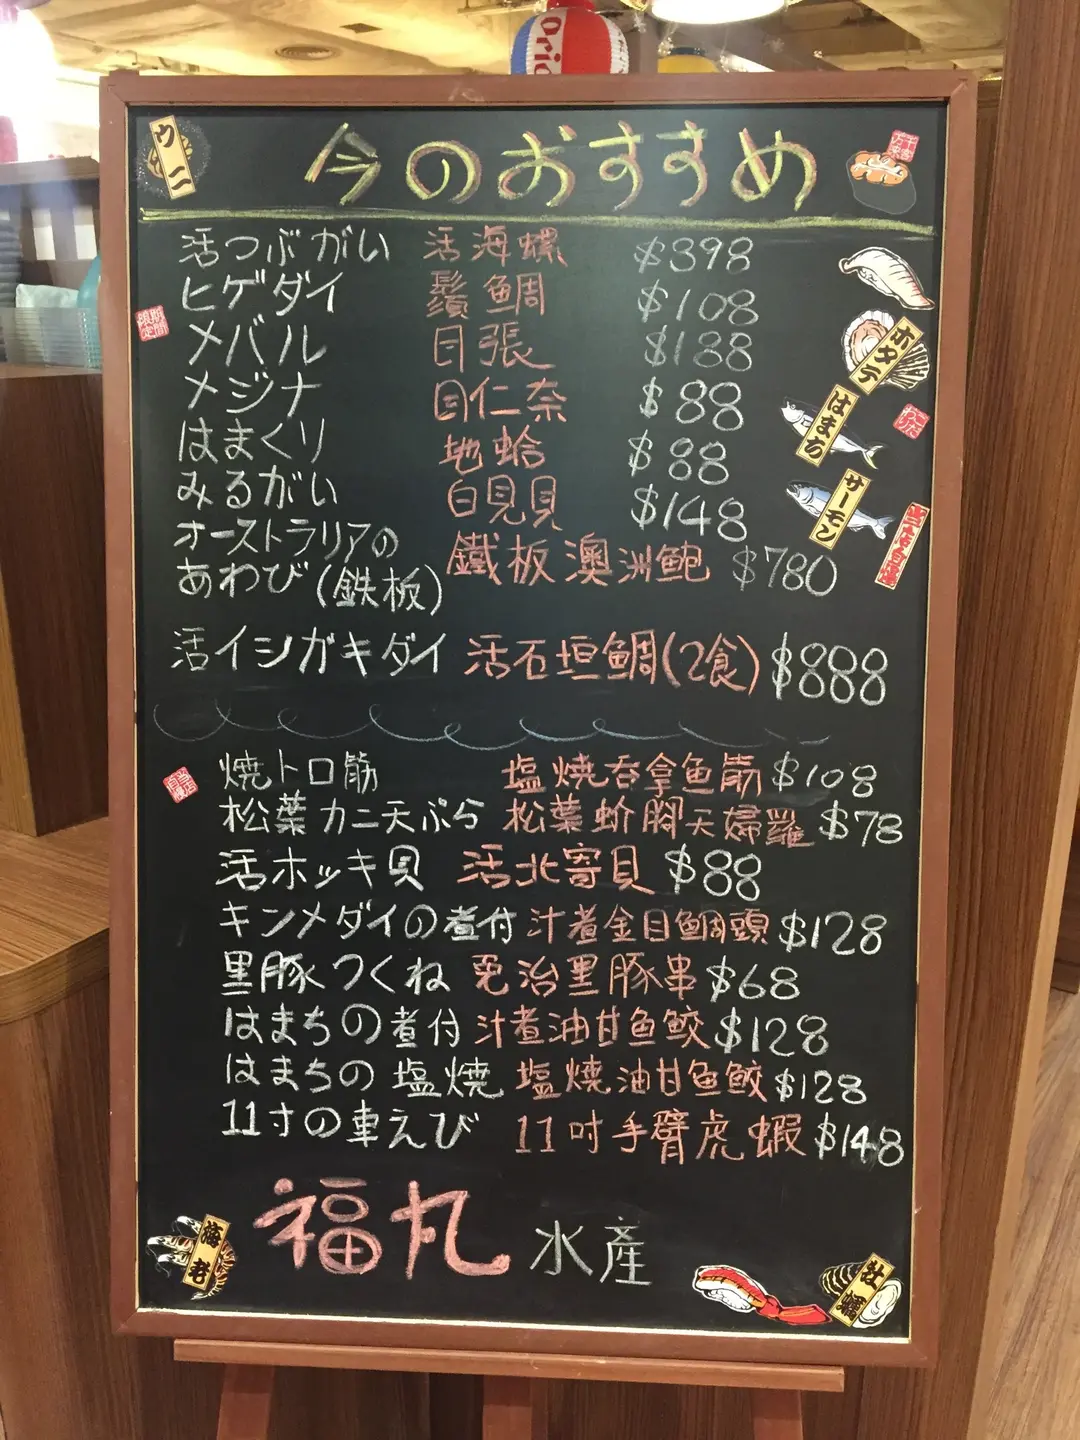 今のおすすめ
ウニ
活つぶがい 活海螺 $398
ヒゲダイ 鬚鯛 $108
メバル 目張 $188
メジナ 目仁奈 $88
はまくり 地蛤 $88
みるがい 白見貝 $148
オーストラリアの
あわび(鉄板) 鐵板澳洲鮑 $780
活イシガキダイ 活石垣鯛(2食) $888
焼トロ筋 塩燒吞拿魚筋 $108
松葉カニ天ぷら 松葉蚧腳天婦羅 $78
活ホッキ貝 活北寄貝 $88
キンメダイの煮付 汁煮金目鯛頭 $128
黒豚つくね 免治黒豚串 $68
はまちの煮付 汁煮油甘魚鮫 $128
はまちの塩焼 塩燒油甘魚鮫 $128
11寸の車えび 11吋手臂虎蝦 $148
福丸 水產
ホタテ
はまち
サーモン
海老
牡蠣